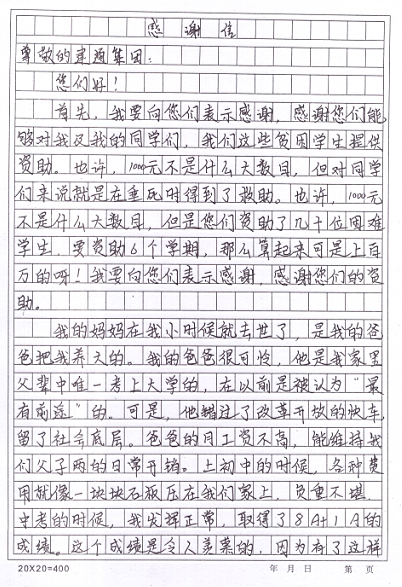 感谢信
尊敬的建通集团：
您们好！
首先，我要向您们表示感谢，感谢您们能
够对我及我的同学们，我们这些贫困学生提供
资助。也许，1000元不是什么大数目，但对同学
们来说就是在垂死时得到了救助。也许，1000元
不是什么大数目，但是您们资助了几十位困难
学生，要资助6个学期，那么算起来可是上百
万的呀！我要向您们表示感谢，感谢您们的资
助。
我的妈妈在我小时候就去世了，是我的爸
爸把我养大的。我的爸爸很可怜，他是我家里
父辈中唯一考上大学的，在以前是被认为“最
有前途”的。可是，他错过了改革开放的快车，
留了社会底层。爸爸的月工资不高，能维持我
们父子两的日常开销。上初中的时候，各种费
用就像一块块石板压在我们家上，负重不堪。
中考的时候，我发挥正常，取得了8A+1A的
成绩。这个成绩是令人羡慕的，因为有了这样
20X20=400 年 月 日 第 页